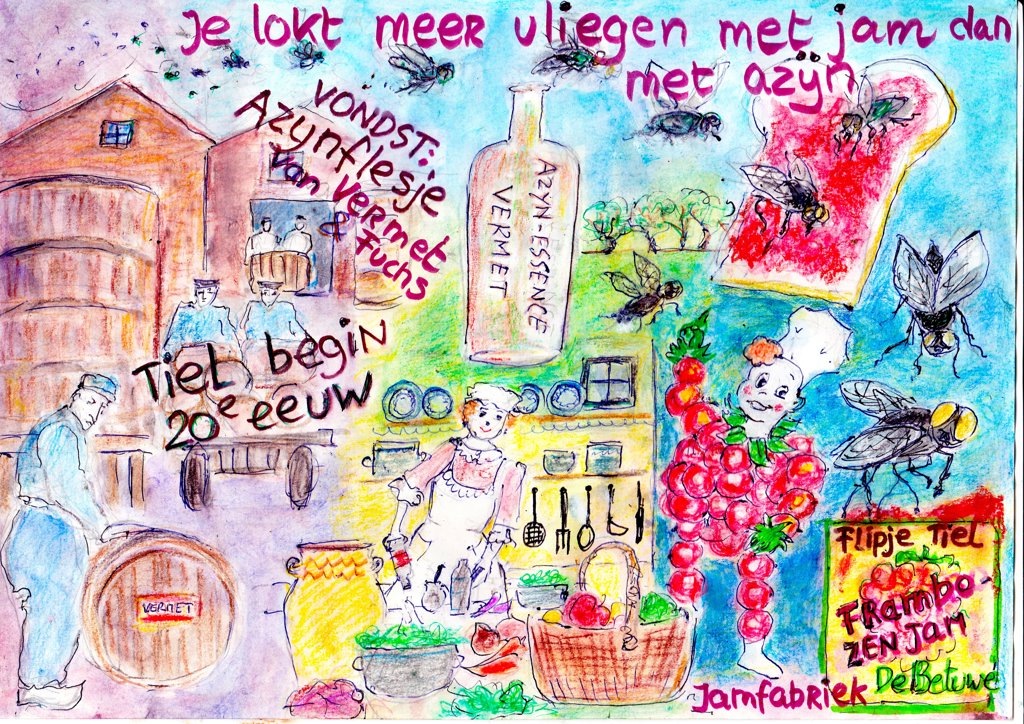 Je lokt meer vliegen met jam dan
met azijn
VONDST:
Azijnflesje
van Vermet
& Fuchs
AZYN-ESSENCE
VERMET
Tiel begin
20e eeuw
VERMET
Flipje Tiel
Frambo-
zen jam
De Betuwe
Jamfabriek